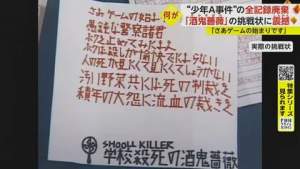 何が
“少年A事件”の全記録廃棄
「酒鬼薔薇」の挑戦状に震撼
「さあゲームの始まりです」
実際の挑戦状
さあゲームの始まりです
愚鈍な警察諸君
ボクを止めてみたまえ
ボクは殺しが愉快でたまらない
人の死が見たくて見たくてしょうがない
汚い野菜共には死の制裁を
積年の大怨に流血の裁きを
SHOOLL KILLER
学校殺死の酒鬼薔薇
特集シリーズ
見られます